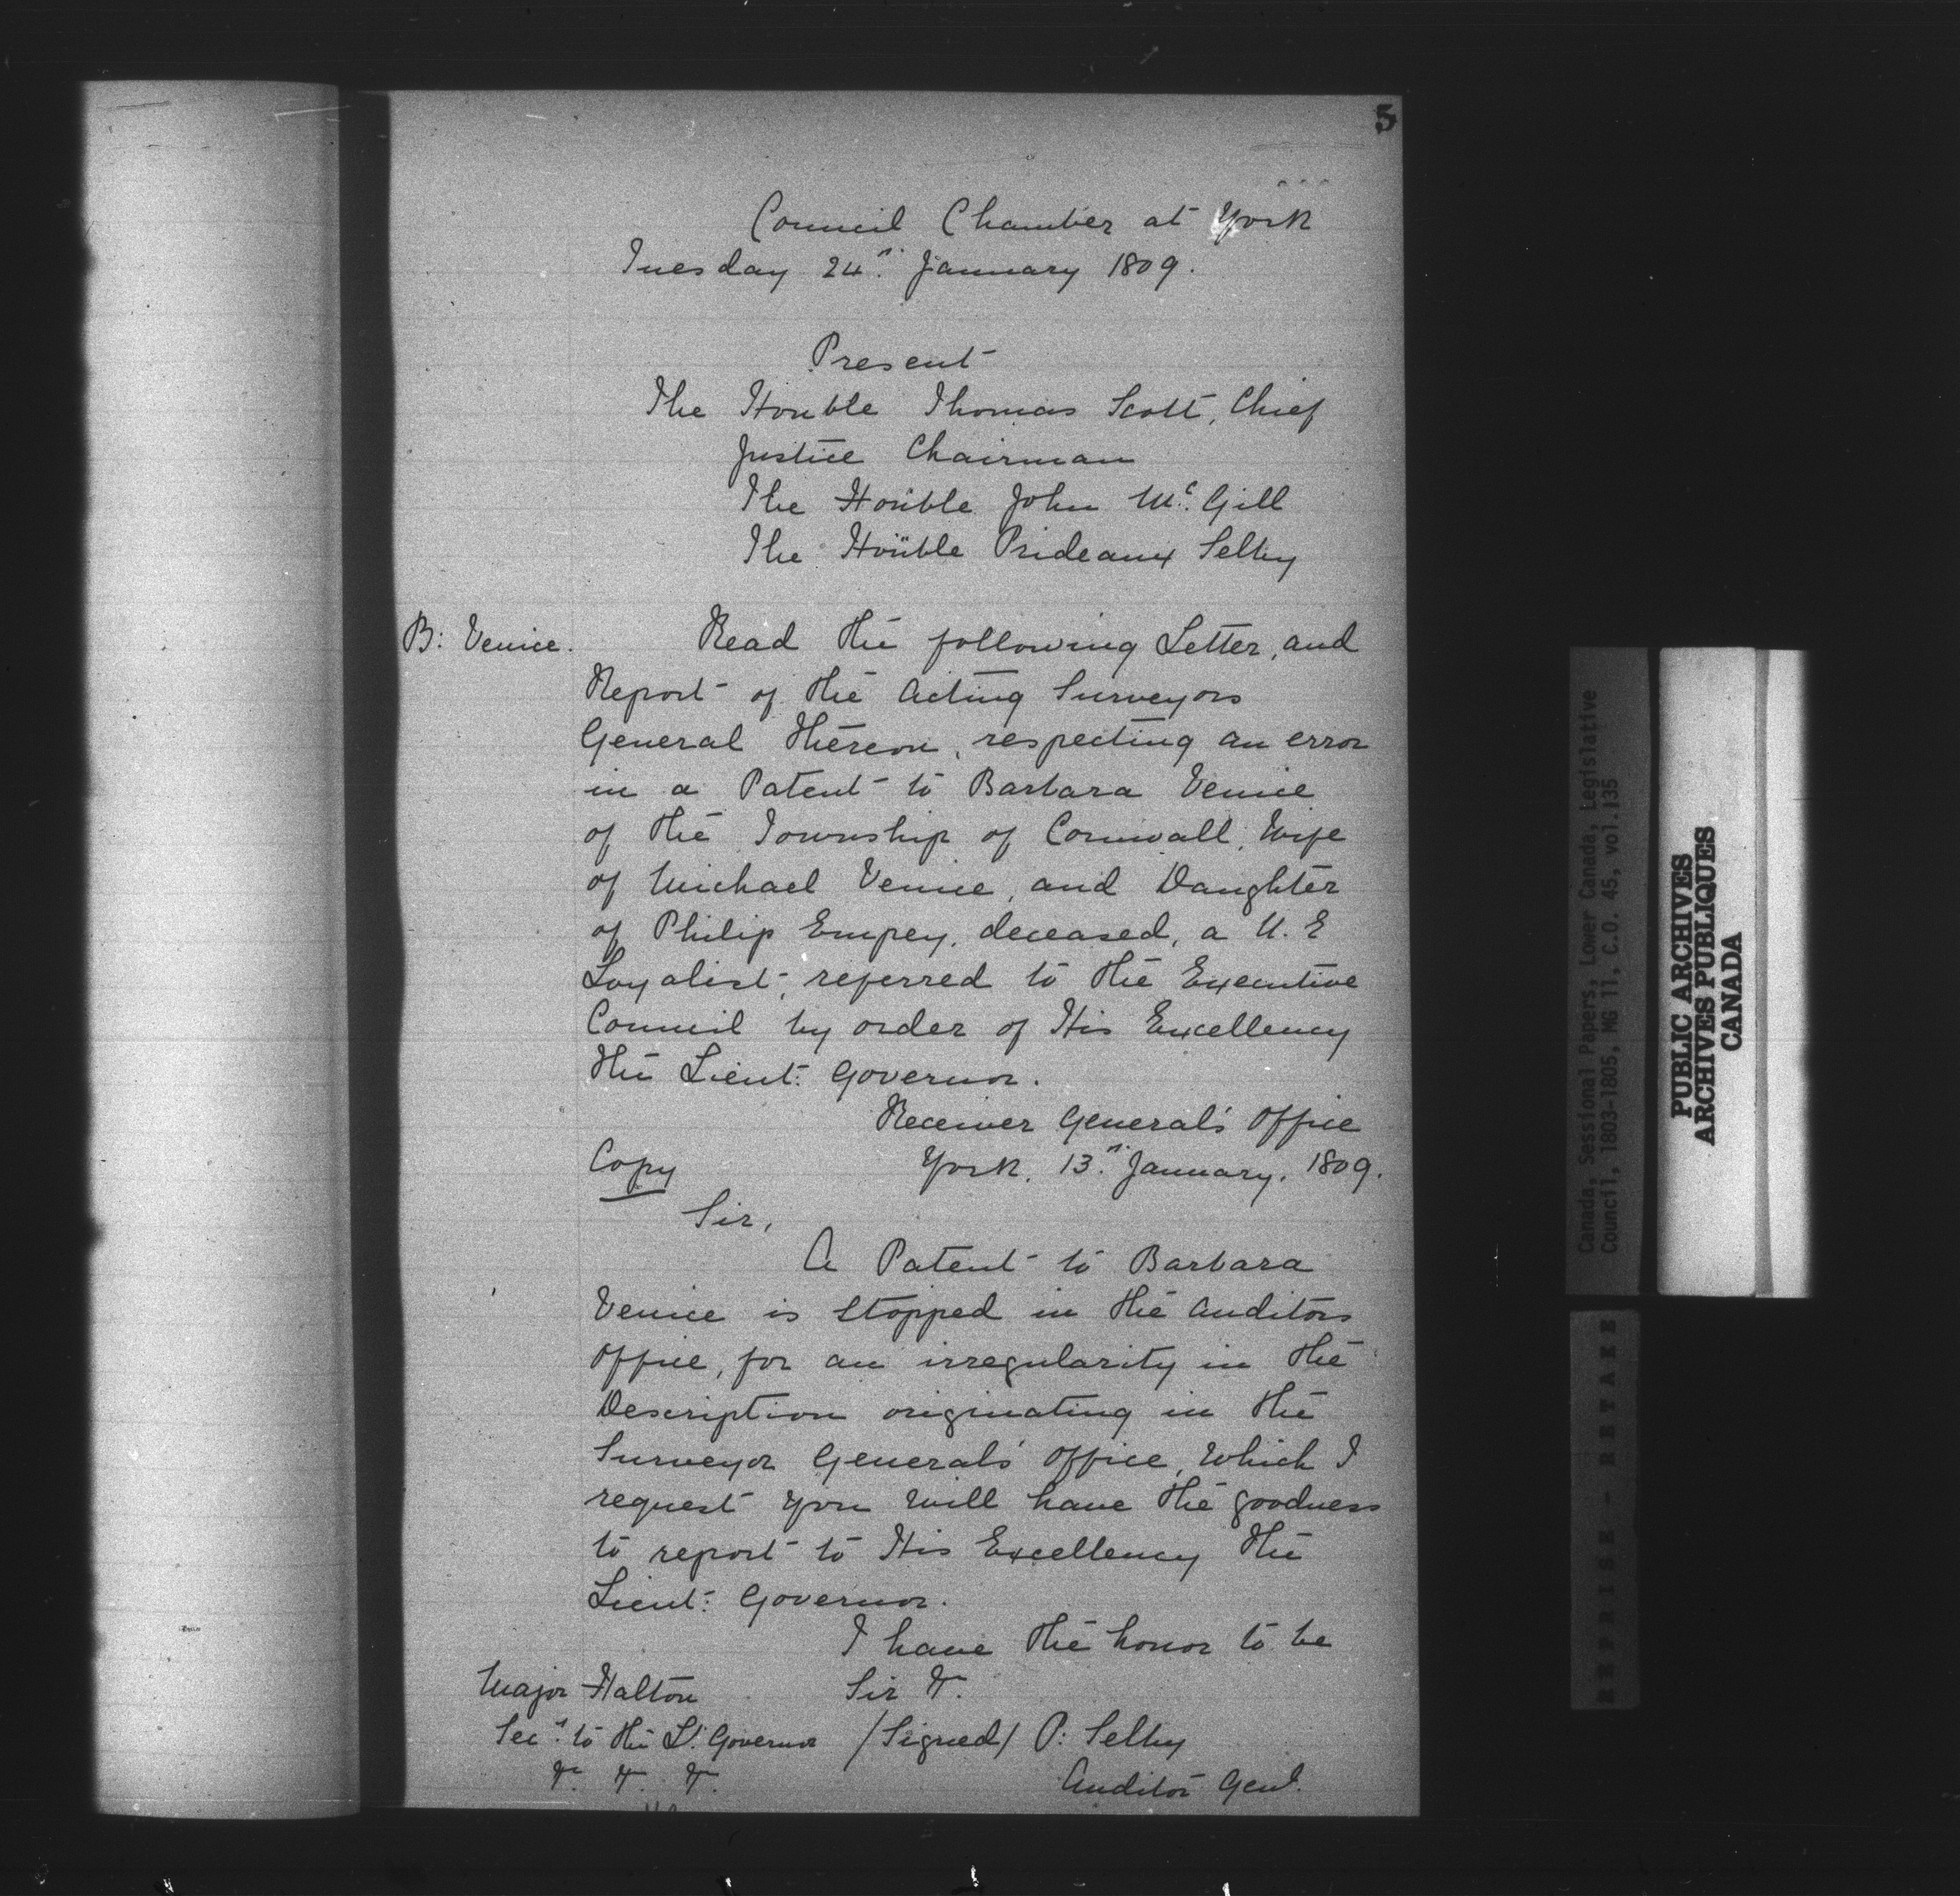 5
Council Chamber at York
Tuesday 24th January 1809.
Present
The Honble Thomas Scott, Chief
Justice Chairman
The Honble John McGill
The Honble Prideaux Selby
B: Venice. Read the following Letter, and
Report of the Acting Surveyors
General thereon, respecting an error
in a Patent to Barbara Venice
of the Township of Cornwall, Wife
of Michael Venice, and Daughter
of Philip Empey, deceased, a U.E
Loyalist, referred to the Executive
Council by order of His Excellency
the Lieut: Governor.
Receiver General's Office
Copy York, 13th January, 1809.
Sir,
A Patent to Barbara
Venice is stopped in the Auditors
Office, for an irregularity in the
Description originating in the
Surveyor General's Office, Which I
request you will have the goodness
to report to His Excellency the
Lieut: Governor.
I have the honor to be
Major Halton Sir &c.
Secy to the Lt. Governor /Signed/ P: Selby
&c. &c. &c. Auditor Genl.
Canada, Sessional Papers, Lower Canada, Legislative
Council, 1803-1805, MG 11, C.O. 45, vol.135
PUBLIC ARCHIVES
ARCHIVES PUBLIQUES
CANADA
REPRISE - RETAKE